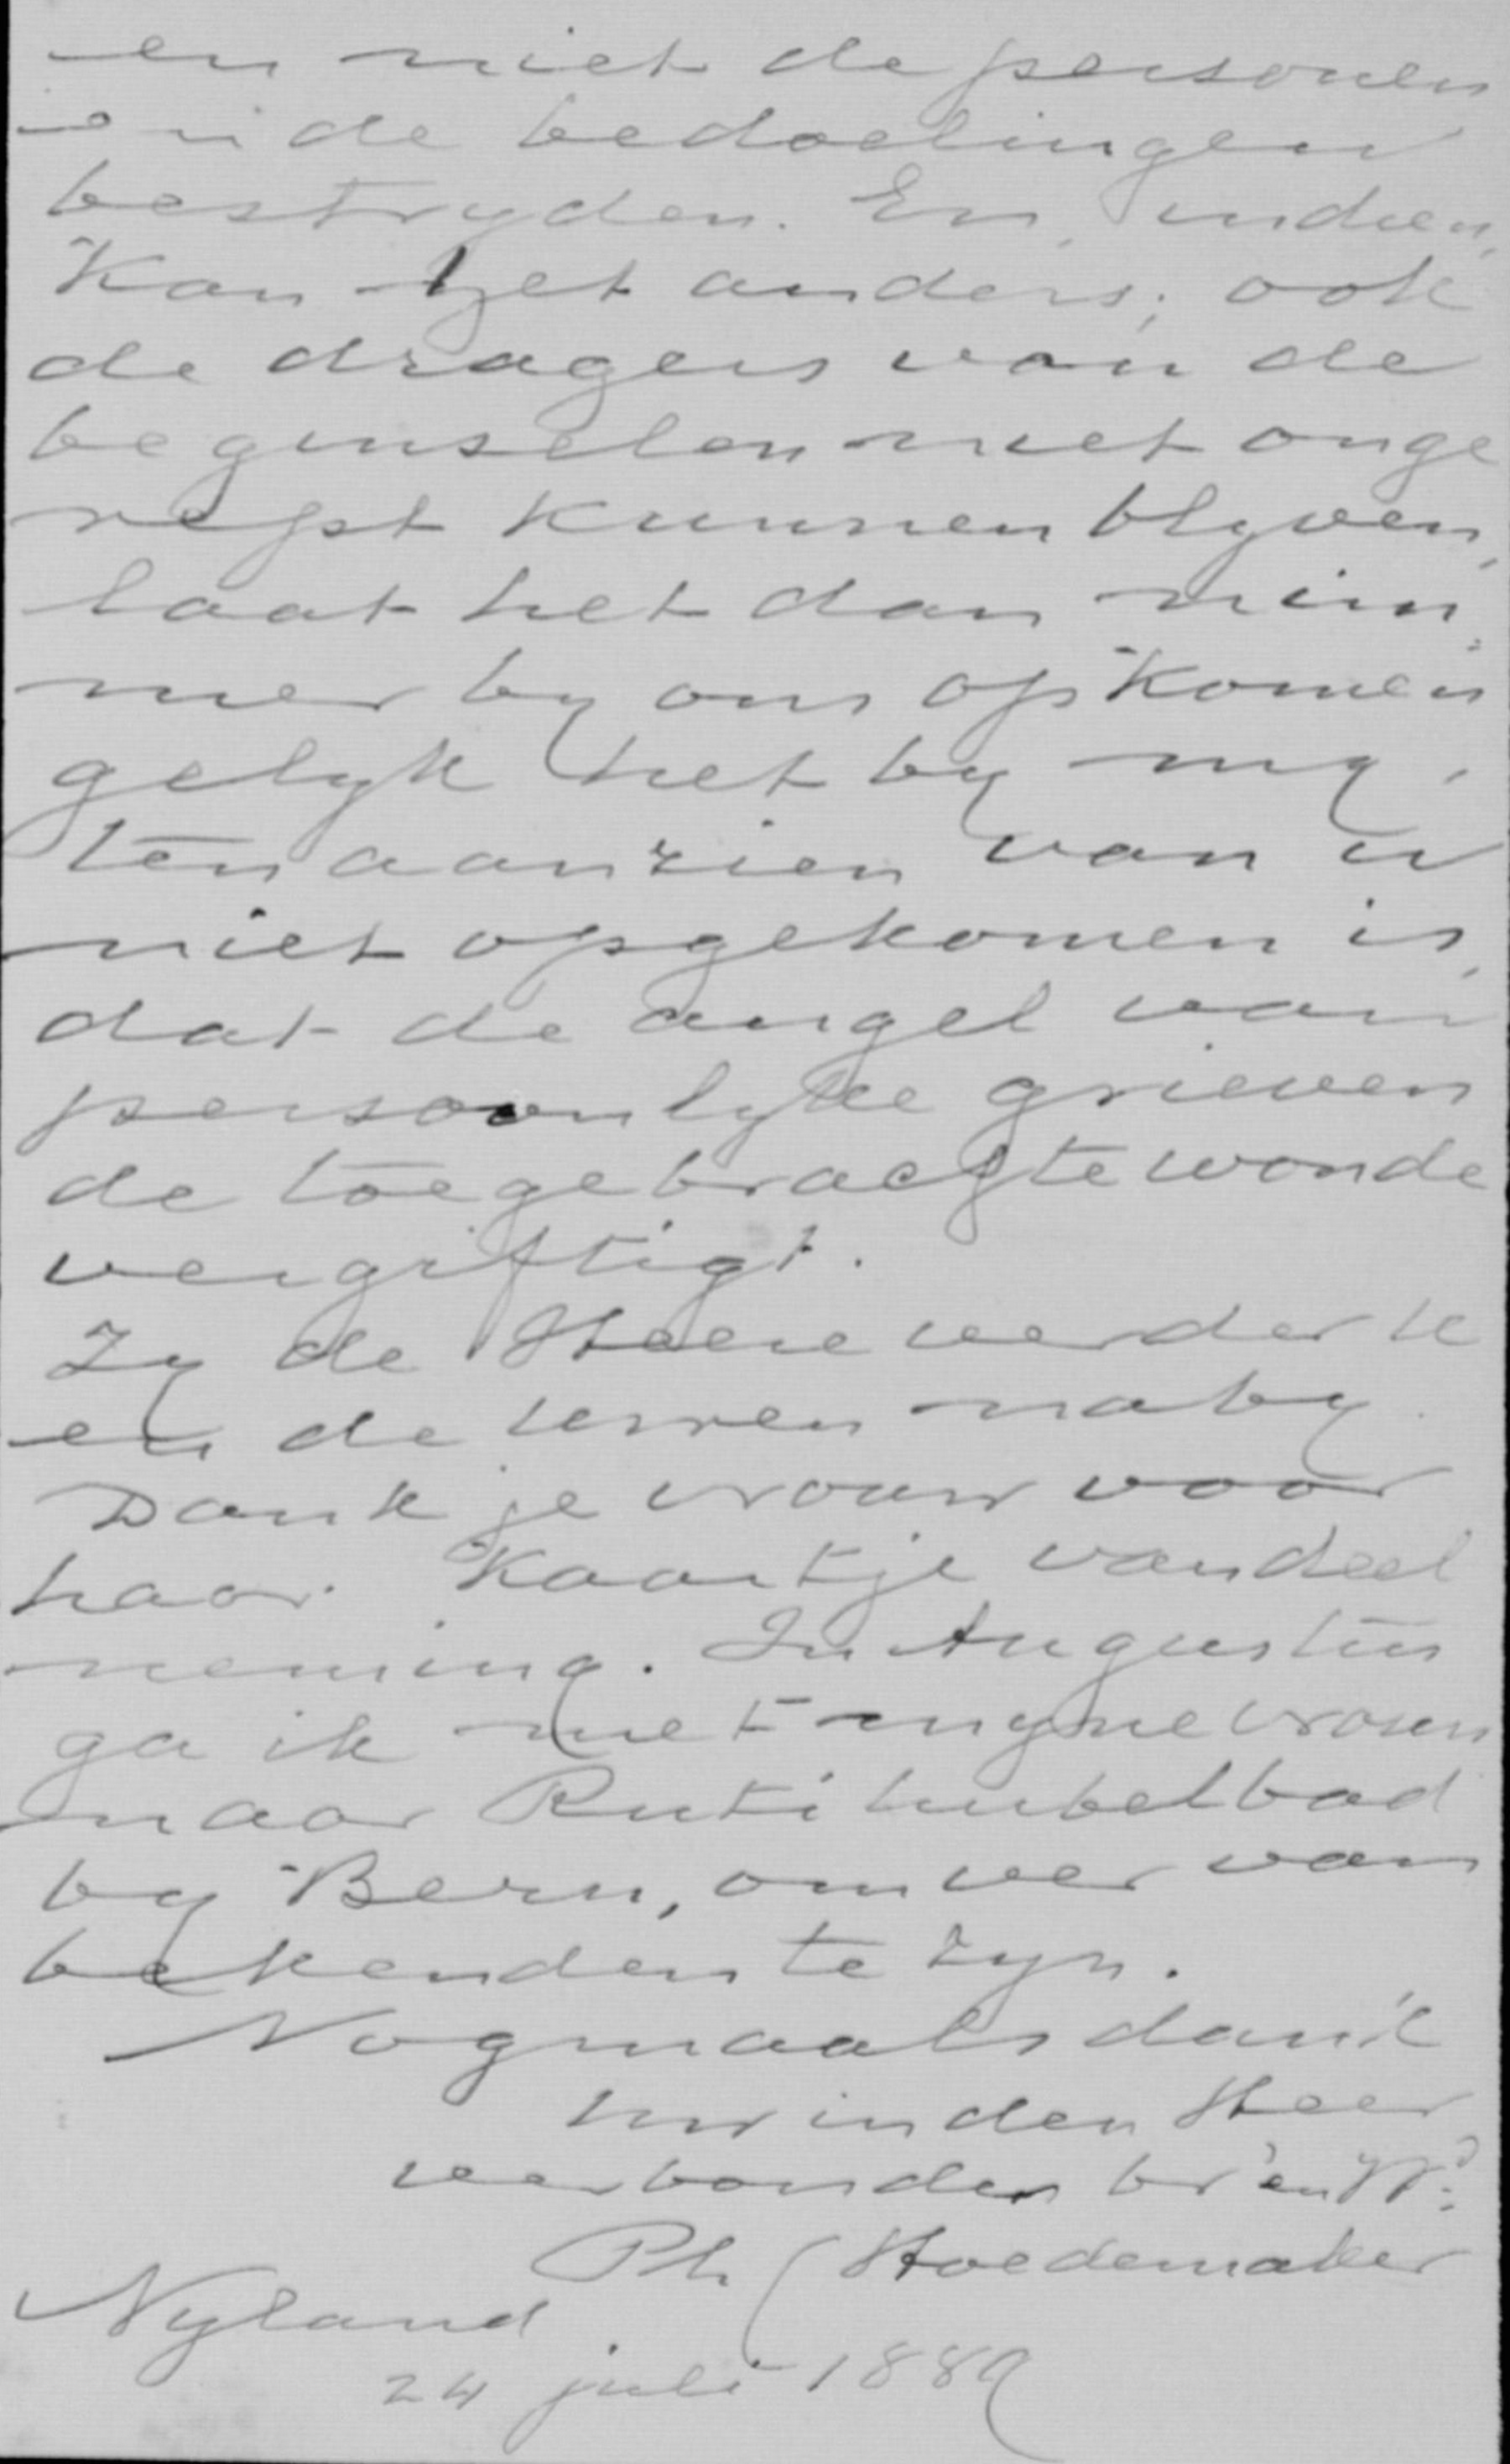 en niet de personen
en de bedoelingen
bestryden. En, indien,
Kan het anders, ook
de dragers van de
beginselen niet onge
rept kunnen blyven,
laat het dan nim,
mer by ons op komen
gelyk het by my,
ten aanzien van u
niet opgekomen is,
dat de angel van
persoonlyke grieven
de toegebrachte wonde
vergiftigt.
Zy de Heere verder U
en de uwen naby.
Dank je vrouw voor
haar Kaartje van deel
neming. In Augustus
ga ik met myne vrouw
naar Rutihubelbad
by Bern, om ver van
bekenden te zyn.
Nogmaals dank
Uw in den Heer
verbonden br en Vr.
Ph Hoedemaker
Nyland
24 juli 1889